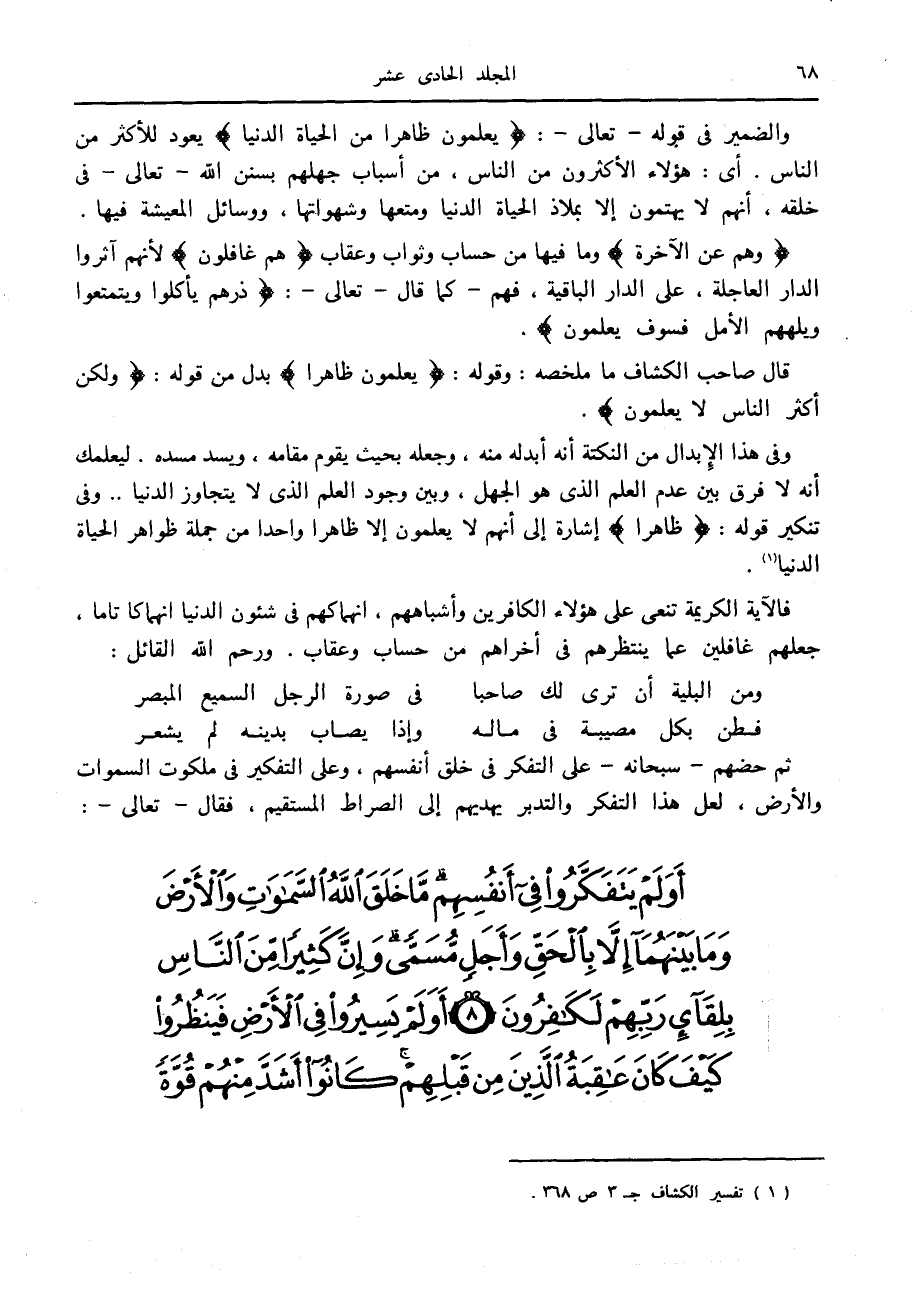 ٦٨
المجلد الحادى عشر
والضمير فى قوله – تعالى – : ﴿ يعلمون ظاهرا من الحياة الدنيا ﴾ يعود للأكثر من
الناس . أى : هؤلاء الأكثرون من الناس ، من أسباب جهلهم بسنن الله – تعالى – فى
خلقه ، أنهم لا يهتمون إلا بملاذ الحياة الدنيا ومتعها وشهواتها ، ووسائل المعيشة فيها .
﴿ وهم عن الآخرة ﴾ وما فيها من حساب وثواب وعقاب ﴿ هم غافلون ﴾ لأنهم آثروا
الدار العاجلة ، على الدار الباقية ، فهم – كما قال – تعالى – : ﴿ ذرهم يأكلوا ويتمتعوا
ويلههم الأمل فسوف يعلمون ﴾ .
قال صاحب الكشاف ما ملخصه : وقوله : ﴿ يعلمون ظاهرا ﴾ بدل من قوله : ﴿ ولكن
أكثر الناس لا يعلمون ﴾ .
وفى هذا الإِبدال من النكتة أنه أبدله منه ، وجعله بحيث يقوم مقامه ، ويسد مسده . ليعلمك
أنه لا فرق بين عدم العلم الذى هو الجهل ، وبين وجود العلم الذى لا يتجاوز الدنيا .. وفى
تنكير قوله : ﴿ ظاهرا ﴾ إشارة إلى أنهم لا يعلمون إلا ظاهرا واحدا من جملة ظواهر الحياة
الدنيا(١) .
فالآية الكريمة تنعى على هؤلاء الكافرين وأشباههم ، انهماكهم فى شئون الدنيا انهماكا تاما ،
جعلهم غافلين عما ينتظرهم فى أخراهم من حساب وعقاب . ورحم الله القائل :
ومن البلية أن ترى لك صاحبا فى صورة الرجل السميع المبصر
فـطن بكل مصيبـة فى مـالـه وإذا يصـاب بدينـه لم يشعـر
ثم حضهم – سبحانه – على التفكر فى خلق أنفسهم ، وعلى التفكير فى ملكوت السموات
والأرض ، لعل هذا التفكر والتدبر يهديهم إلى الصراط المستقيم ، فقال – تعالى – :
أَوَلَمْ يَتَفَكَّرُوا۟ فِىٓ أَنفُسِهِم ۗ مَّا خَلَقَ ٱللَّهُ ٱلسَّمَـٰوَٰتِ وَٱلْأَرْضَ
وَمَا بَيْنَهُمَآ إِلَّا بِٱلْحَقِّ وَأَجَلٍ مُّسَمًّى ۗ وَإِنَّ كَثِيرًا مِّنَ ٱلنَّاسِ
بِلِقَآئِ رَبِّهِمْ لَكَـٰفِرُونَ ٨ أَوَلَمْ يَسِيرُوا۟ فِى ٱلْأَرْضِ فَيَنظُرُوا۟
كَيْفَ كَانَ عَـٰقِبَةُ ٱلَّذِينَ مِن قَبْلِهِمْ ۚ كَانُوٓا۟ أَشَدَّ مِنْهُمْ قُوَّةً
( ١ ) تفسير الكشاف جـ ٣ ص ٣٦٨ .